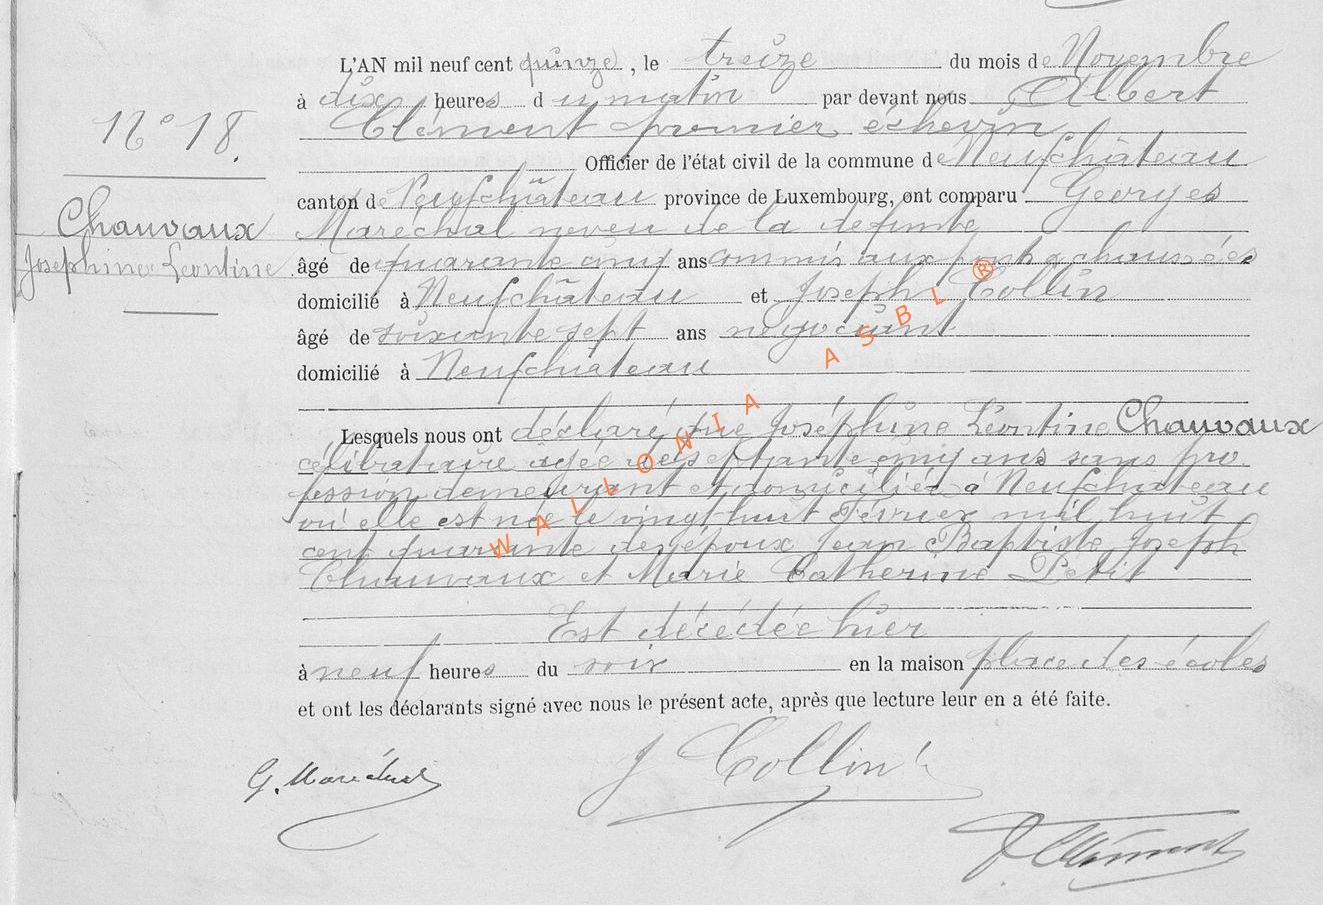 N° 18.
Chauvaux
Josephine Léontine
L'AN mil neuf cent quinze, le treize du mois de Novembre
à dix heures du matin par devant nous Albert
Clément premier échevin
Officier de l'état civil de la commune de Neufchâteau
canton de Neufchâteau province de Luxembourg, ont comparu Georges
Maréchal neveu de la defunte
âgé de quarante cinq ans commis aux ponts & chaussées
domicilié à Neufchâteau et Joseph Collin
âgé de soixante sept ans négociant
domicilié à Neufchateau
Lesquels nous ont déclaré que Joséphine Léontine Chauvaux
célibataire agée de septante cinq ans sans pro-
fession demeurant et domiciliée à Neufchateau
où elle est née le vingt huit Février mil huit
cent quarante des époux Jean Baptiste Joseph
Chauvaux et Marie Catherine Petit
Est décédée hier
à neuf heures du soir en la maison place des écoles
et ont les déclarants signé avec nous le présent acte, après que lecture leur en a été faite.
G. Maréchal
J Collin
Clément
WALLONIA ASBL ®